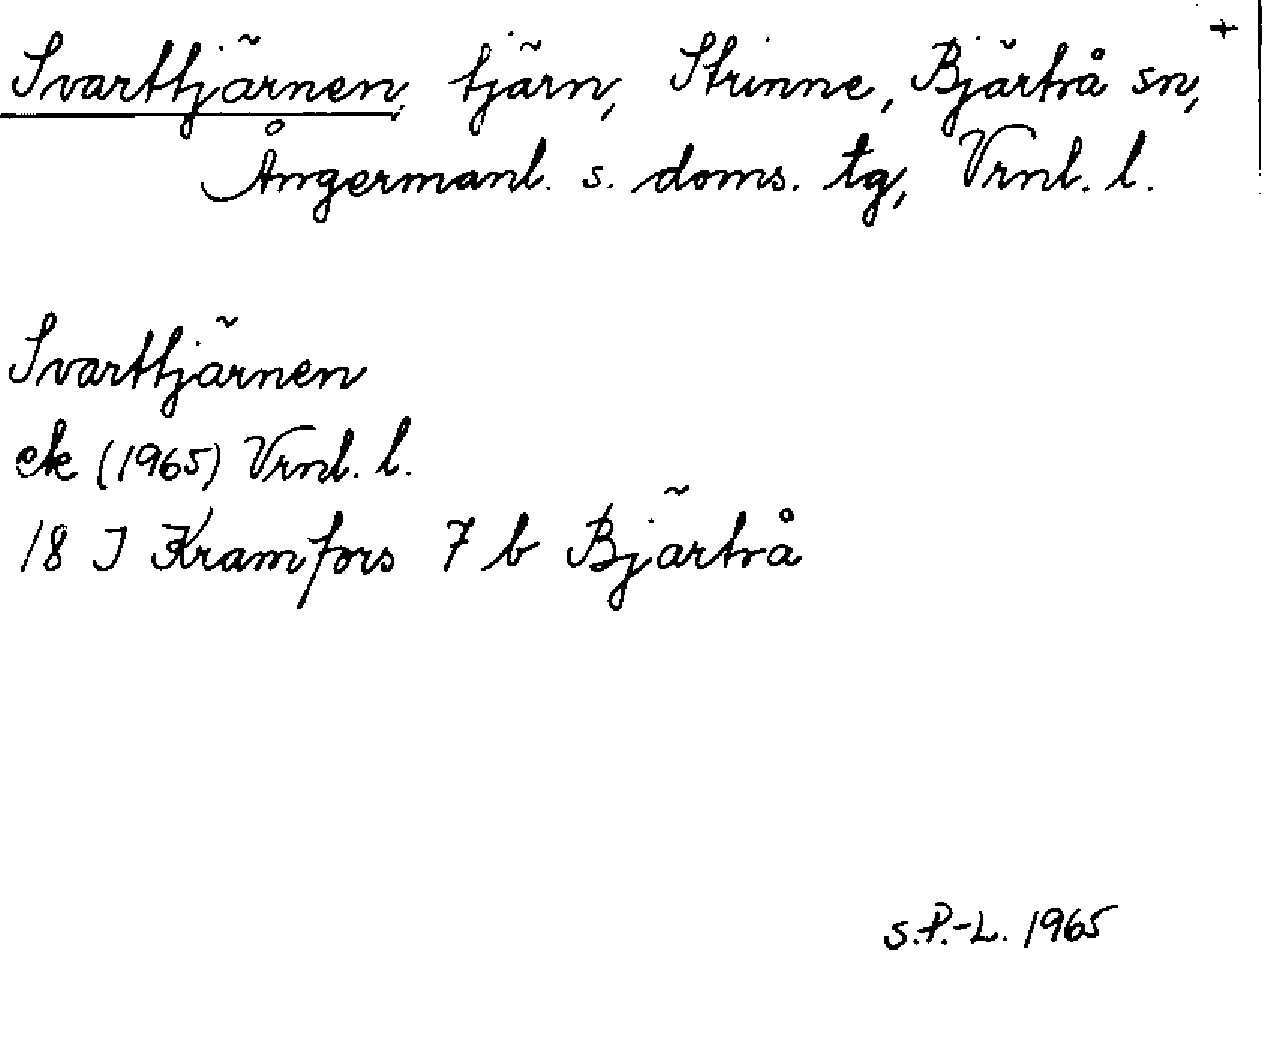 +
Svarttjärnen, tjärn, Strinne, Bjärtrå sn,
Ångermanl. s. doms. tg, Vrnl. l.
Svarttjärnen
ek (1965) Vrnl. l.
18 J Kramfors 7 b Bjärtrå
S.P.-L. 1965